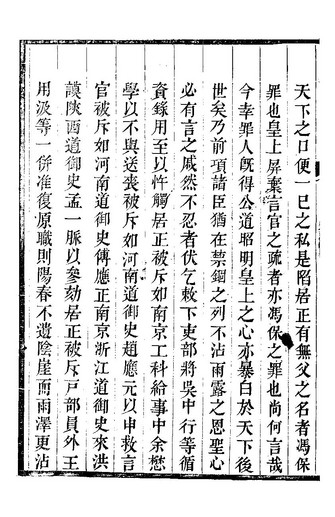 天下之口便一已之私是陷居正有無父之名者馮保
罪也皇上屏棄言官之疏者亦馮保之罪也尚何言哉
今幸罪人旣得公道昭明皇上之心亦暴白於天下後
世矣乃前項諸臣猶在禁錮之列不沾雨露之恩聖心
必有言之戚然不忍者伏乞敕下吏部將吳中行等循
資錄用至以忤觸居正被斥如南京工科給事中余懋
學以不與送喪被斥如河南道御史趙應元以申救言
官被斥如河南道御史傅應正南京浙江道御史來洪
謨陝西道御史孟一脈以參劾居正被斥戶部員外王
用汲等一併准復原職則陽春不遺陰崖而雨澤更沾